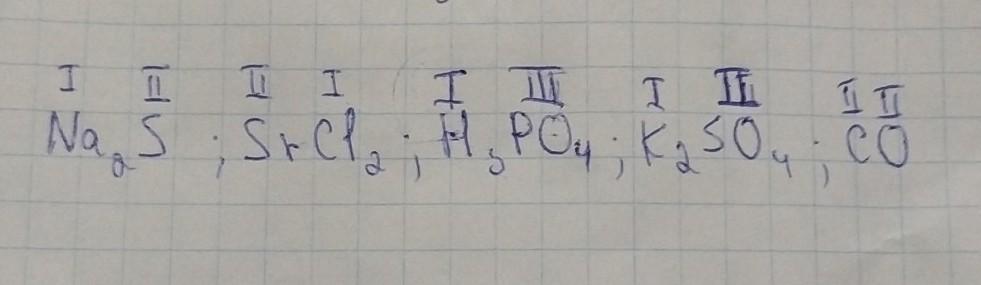 I II II I I III I II II II
Na₂S ; SrCl₂ ; H₃PO₄ ; K₂SO₄ ; CO